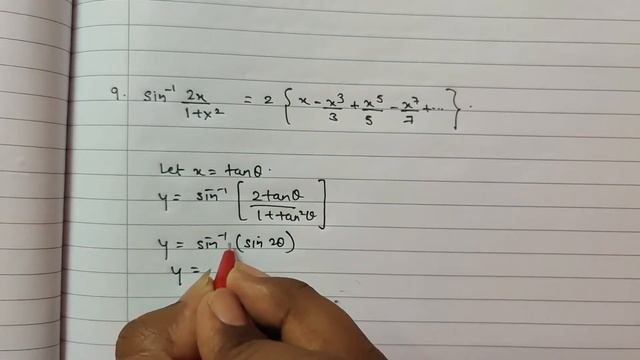 9. sin⁻¹ 2x/(1+x²) = 2 { x - x³/3 + x⁵/5 - x⁷/7 + ... }.
Let x = tanθ.
y = sin⁻¹ [ 2tanθ/(1+tan²θ) ]
y = sin⁻¹ (sin 2θ)
y =